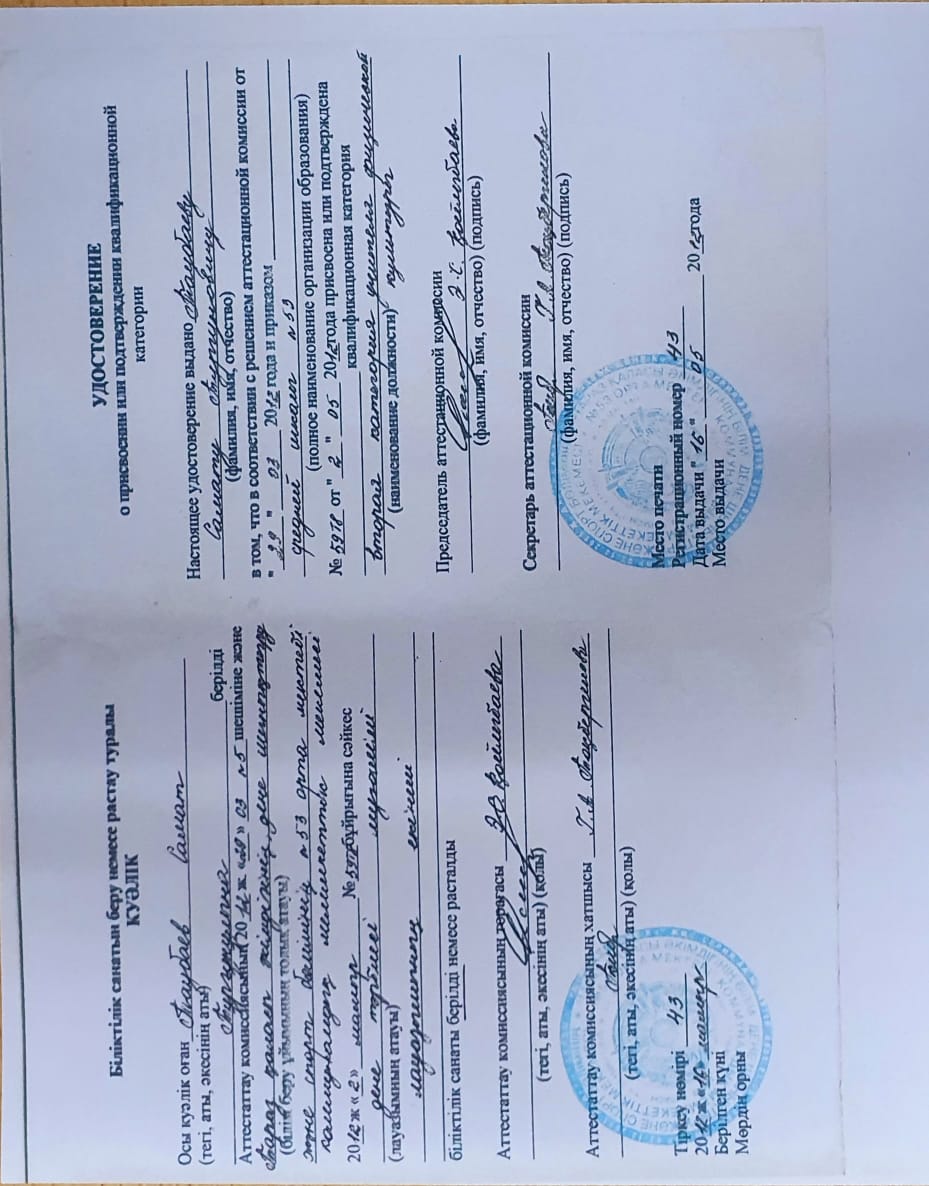 Біліктілік санатын беру немесе растау туралы
КУӘЛІК
Осы куәлік оған Таубаев Самат
(тегі, аты, әкесінің аты)
берілді
Аттестаттау комиссиясының 2012 ж. «29» 03 №5 шешіміне және
Тараз қаласы әкімдігінің дене шынықтыру
(білім беру ұйымының толық атауы)
және спорт бөлімінің №53 орта мектебі
коммуналдық мемлекеттік мекемесі
2012 ж «2» мамыр №5978 бұйрығына сәйкес
дене тәрбиесі мұғалімі
(лауазымның атауы)
лауазымының екінші
біліктілік санаты берілді немесе расталды
Аттестаттау комиссиясының төрағасы Э.С. Қойлыбаева
(тегі, аты, әкесінің аты) (қолы)
Аттестаттау комиссиясының хатшысы Г.А.
(тегі, аты, әкесінің аты) (қолы)
Тіркеу нөмірі 43
2012 ж «16» мамыр
Берілген күні
Мөрдің орны
УДОСТОВЕРЕНИЕ
о присвоении или подтверждении квалификационной
категории
Настоящее удостоверение выдано Таубаеву
Самату Тургуновичу
(фамилия, имя, отчество)
в том, что в соответствии с решением аттестационной комиссии от
" 29 " 03 2012 года и приказом
средней школы №53
(полное наименование организации образования)
№ 5978 от " 2 " 05 2012 года присвоена или подтверждена
квалификационная категория
вторая категория учителя физической
(наименование должности) культуры
Председатель аттестационной комиссии
Қойлыбаева
(фамилия, имя, отчество) (подпись)
Секретарь аттестационной комиссии
Г.А.
(фамилия, имя, отчество) (подпись)
Место печати
Регистрационный номер 43
Дата выдачи " 16 " 05 2012 года
Место выдачи